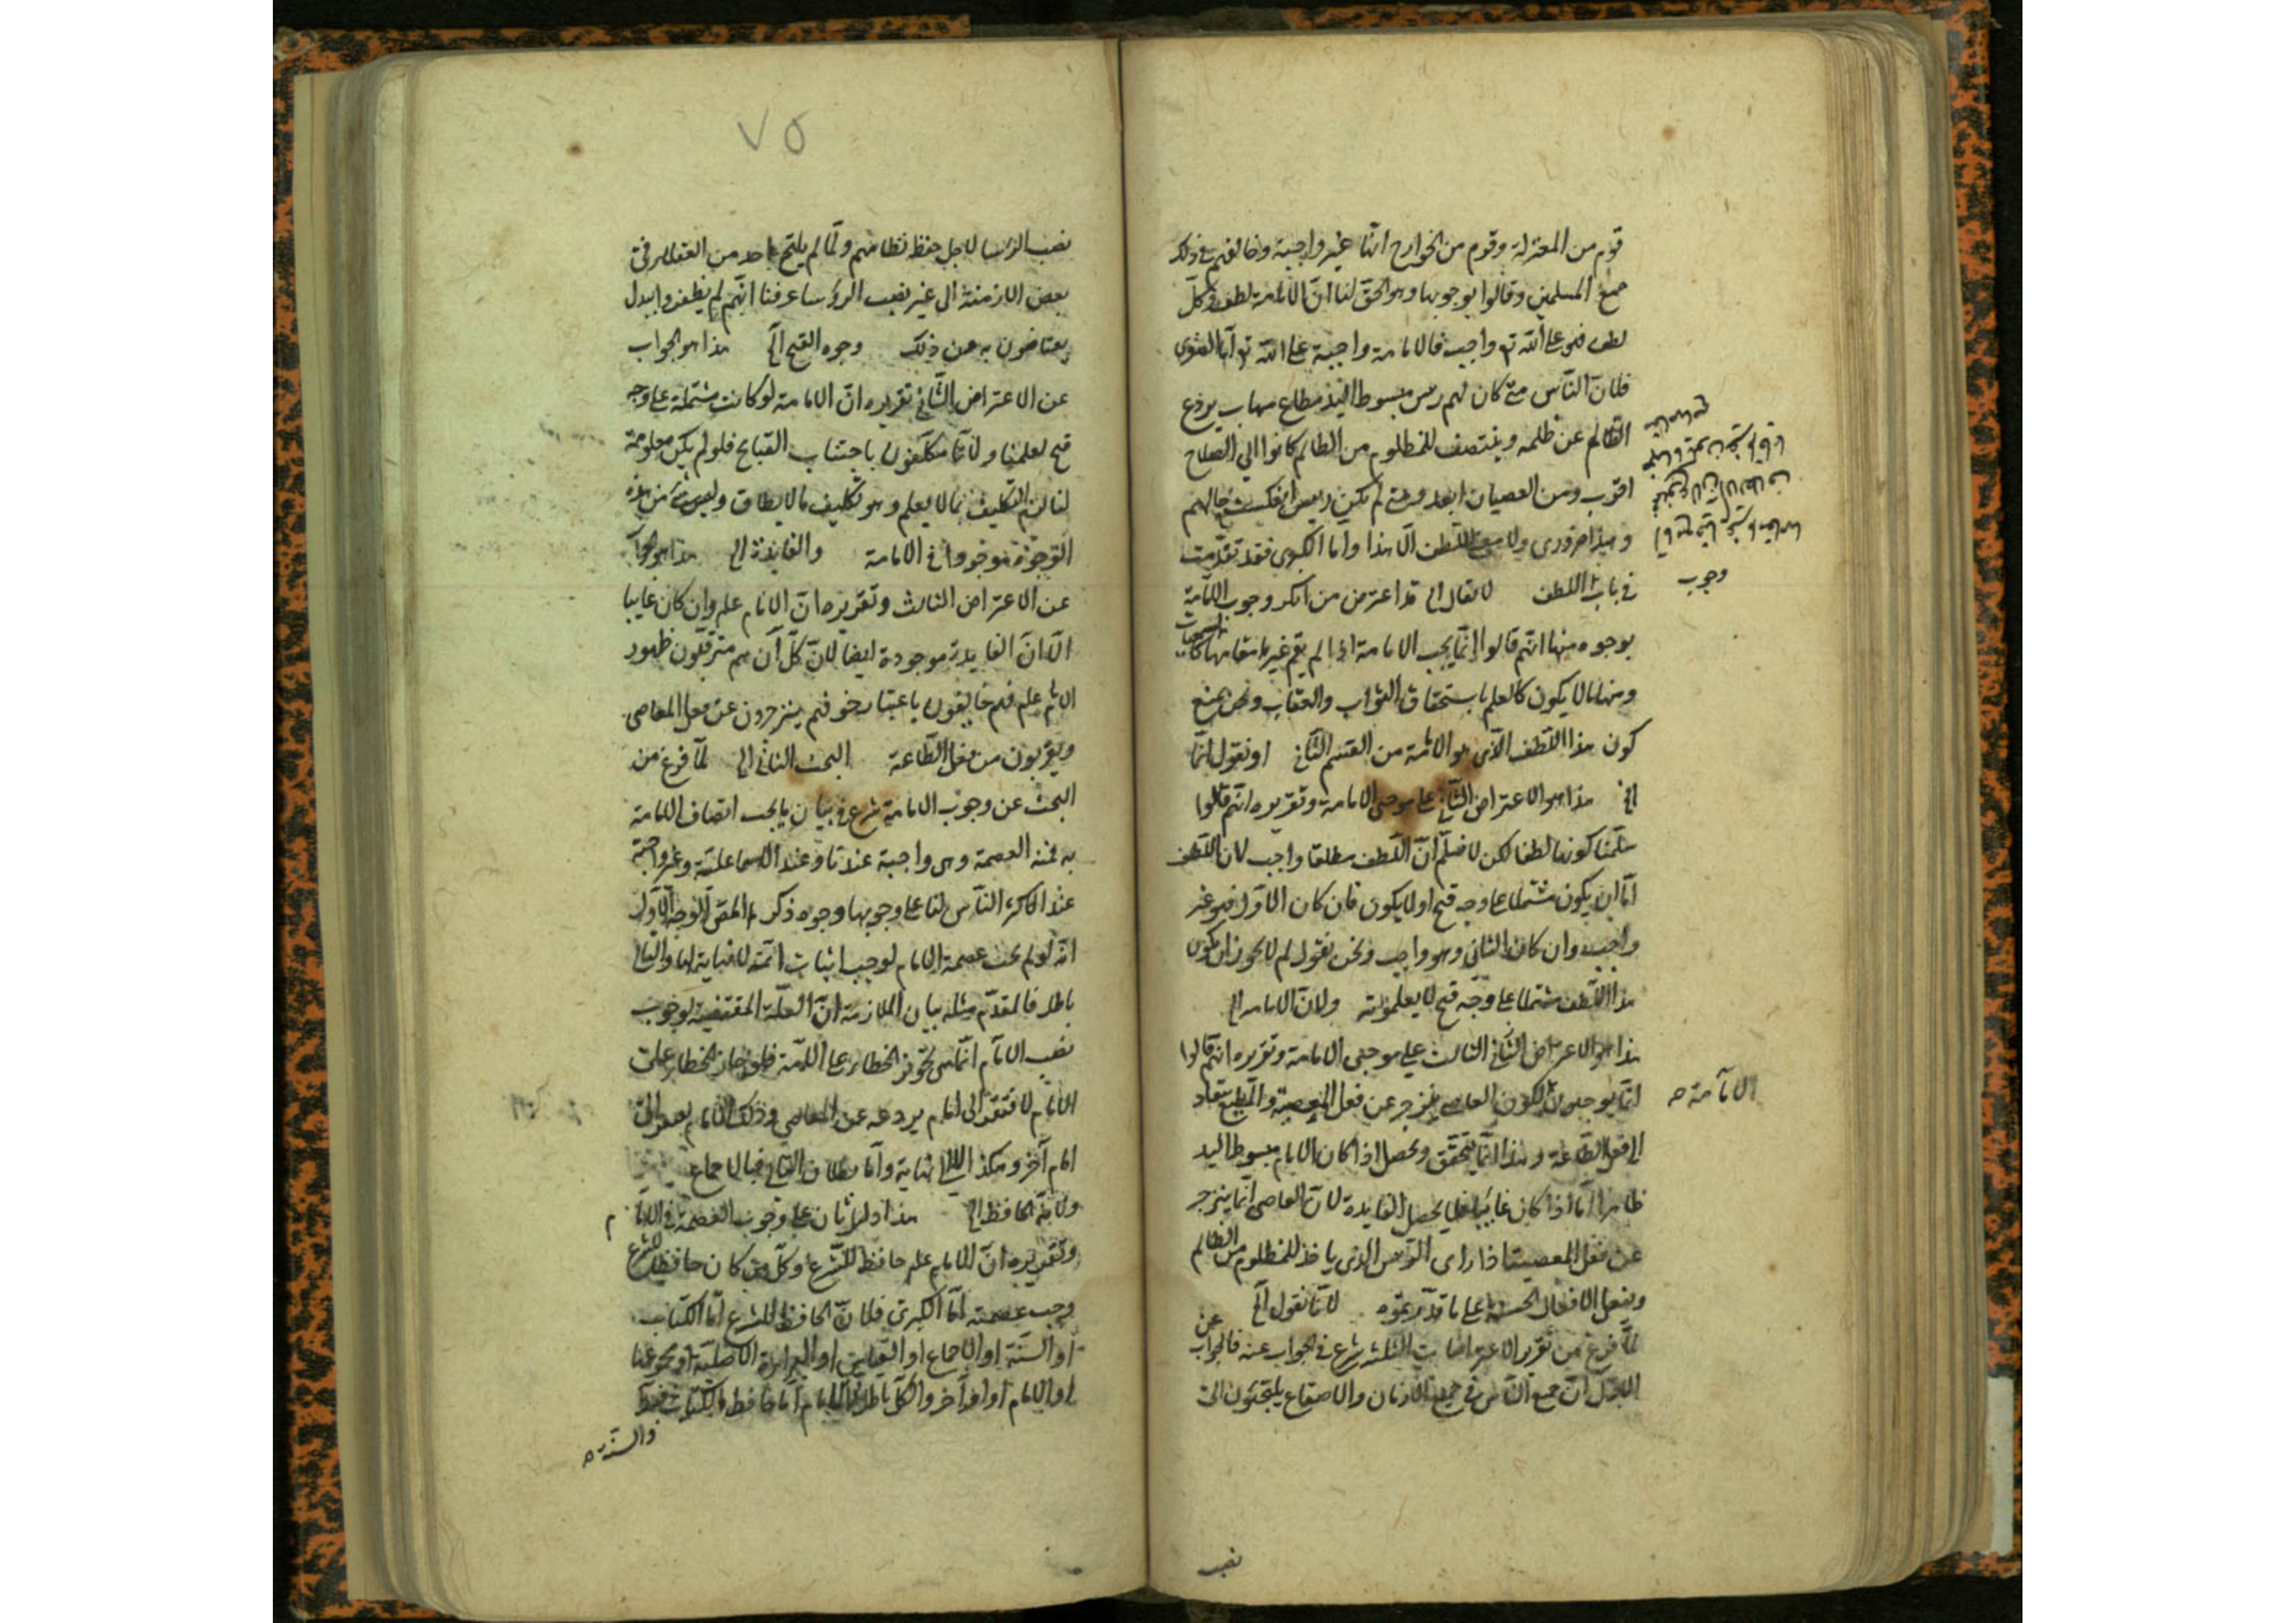 قوم من المعتزلة وقوم من الخوارج انها غير واجبة وخالفهم في ذلك
جميع المسلمين وقالوا بوجوبها وهو الحق لنا ان الامامة لطف وكل
لطف فهو على الله تع واجب فالامامة واجبة على الله تع اما الصغرى
فلان الناس متى كان لهم رئيس مبسوط اليد مطاع مهاب يردع
الظالم عن ظلمه وينتصف للمظلوم من الظالم كانوا الى الصلاح
اقرب ومن العصيان ابعد ومتى لم يكن رئيس انعكست حالهم
وهذا ضرورى ولا معنى للطف الا هذا واما الكبرى فقد تقدمت
في باب اللطف لا يقال الى قد اعترض من انكر وجوب الامامة
بوجوه منها انهم قالوا انما يجب الامامة اذا لم يقم غيرها مقامها
ومنها ما لا يكون كالعلم باستحقاق الثواب والعقاب ونحن نمنع
كون هذا اللطف الذى هو الامامة من القسم الثاني او نقول انما
الخ هذا هو الاعتراض الثاني على موجبى الامامة وتقريره انهم قالوا
سلمنا كونها لطفا لكن لا نسلم ان اللطف مطلقا واجب لان اللطف
اما ان يكون مشتملا على وجه قبح او لا يكون فان كان الاول فهو غير
واجب وان كان الثاني وهو واجب ونحن نقول لم لا يجوز ان يكون
هذا اللطف مشتملا على وجه قبح لا يعلمونه ولان الامامة الخ
هذا هو الاعتراض الثالث على موجبى الامامة وتقريره انهم قالوا
انما يوجبون لكون العاصى ينزجر عن فعل المعصية والمطيع
الى فعل الطاعة وهذا انما يتحقق ويحصل اذا كان الامام مبسوط اليد
ظاهرا اما اذا كان غايبا فلا يحصل الفايدة لان العاصى انما ينزجر
عن فعل المعصية اذا راى الرئيس الذى ياخذ للمظلوم من الظالم
ويفعل الافعال الحسنة على ما قد لانا نقول الخ
لما فرغ من تقرير الاعتراضات الثلثة شرع في الجواب عنه فالجواب عن
الاول ان جميع الناس في جميع الازمان والاصقاع يلتجئون الى
وجوب
الامامة
نصب
٧٥
نصب الرؤسا لاجل حفظ نظامهم ولما لم يلتج احد من العقلاء في
بعض الازمنة الى غير نصب الروسا عرفنا انهم لم يظفروا ببدل
يعتاضون به عن ذلك وجوه القبح الخ هذا هو الجواب
عن الاعتراض الثاني تقريره ان الامامة لو كانت مشتملة على وجه
قبح لعلمناه لانا مكلفون باجتناب القبايح فلو لم يكن معلومة
لنا لزم التكليف بما لا يعلم وهو تكليف ما لا يطاق وليس شئ من هذه
الوجوه موجودا في الامامة والفايدة الى هذا هو الجواب
عن الاعتراض الثالث وتقريره ان الامام علم وان كان غايبا
الا ان الفايدة موجودة ايضا لان كل آن هم مترقبون ظهور
الامام علم فهم خايفون باعتبار خوفهم ينزجرون عن فعل المعاصى
ويقربون من فعل الطاعة البحث الثاني الى لما فرغ من
البحث عن وجوب الامامة شرع في بيان ما يجب اتصاف الامامة
به فمنه العصمة وهى واجبة عندنا وعند الاسماعيلية وغير واجبة
عند اكثر الناس لنا على وجوبها وجوه ذكرها المص الوجه الاول
انه لو لم يجب عصمة الامام لوجب اثبات ائمة لا نهاية لها والتالي
باطل فالمقدم مثله بيان الملازمة ان العلة المقتضية لوجوب
نصب الامام انما هى تجويز الخطاء على الامة فلو جاز الخطاء على
الامام لافتقر الى امام يردعه عن المعاصي وذلك الامام يفتقر الى
امام آخر وهكذا الى لا نهاية واما بطلان التالي فبالاجماع
ولانه الحافظ الخ هذا دليل ثان على وجوب العصمة في الامام
وتقريره ان الامام علم حافظ للشرع وكل من كان حافظ للشرع
وجب عصمته اما الكبرى فلان الحافظ للشرع اما الكتاب
او السنة او الاجماع او القياس او البراءة الاصلية او مجموعها
او الامام او امر آخر والكل باطل
والسنة